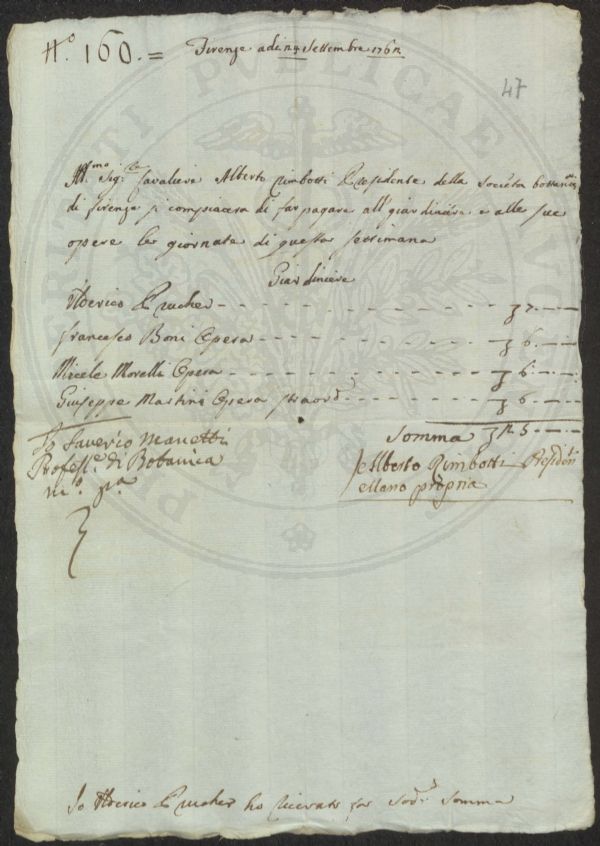 N.° 160. =
Firenze adi 4 Settembre 1762
47
Ill.mo Sig.re Cavaliere Alberto Rimbotti Presidente della Società bottanica
di firenze si compiacera di far pagare all giardiniere e alle sue
opere le giornate di questa settimana
Giardiniere
Oderico Prucher
Francesco Boni Opera 6
Micele Morelli Opera 6
Giuseppe Mastini Opera straord.a 6
Somma
Io Saverio Manetti
Profess.e di Botanica
m.o p.a
Alberto Rimbotti Presidente
Mano propria
Io Oderico Prucher ho ricevuto la sod.a somma